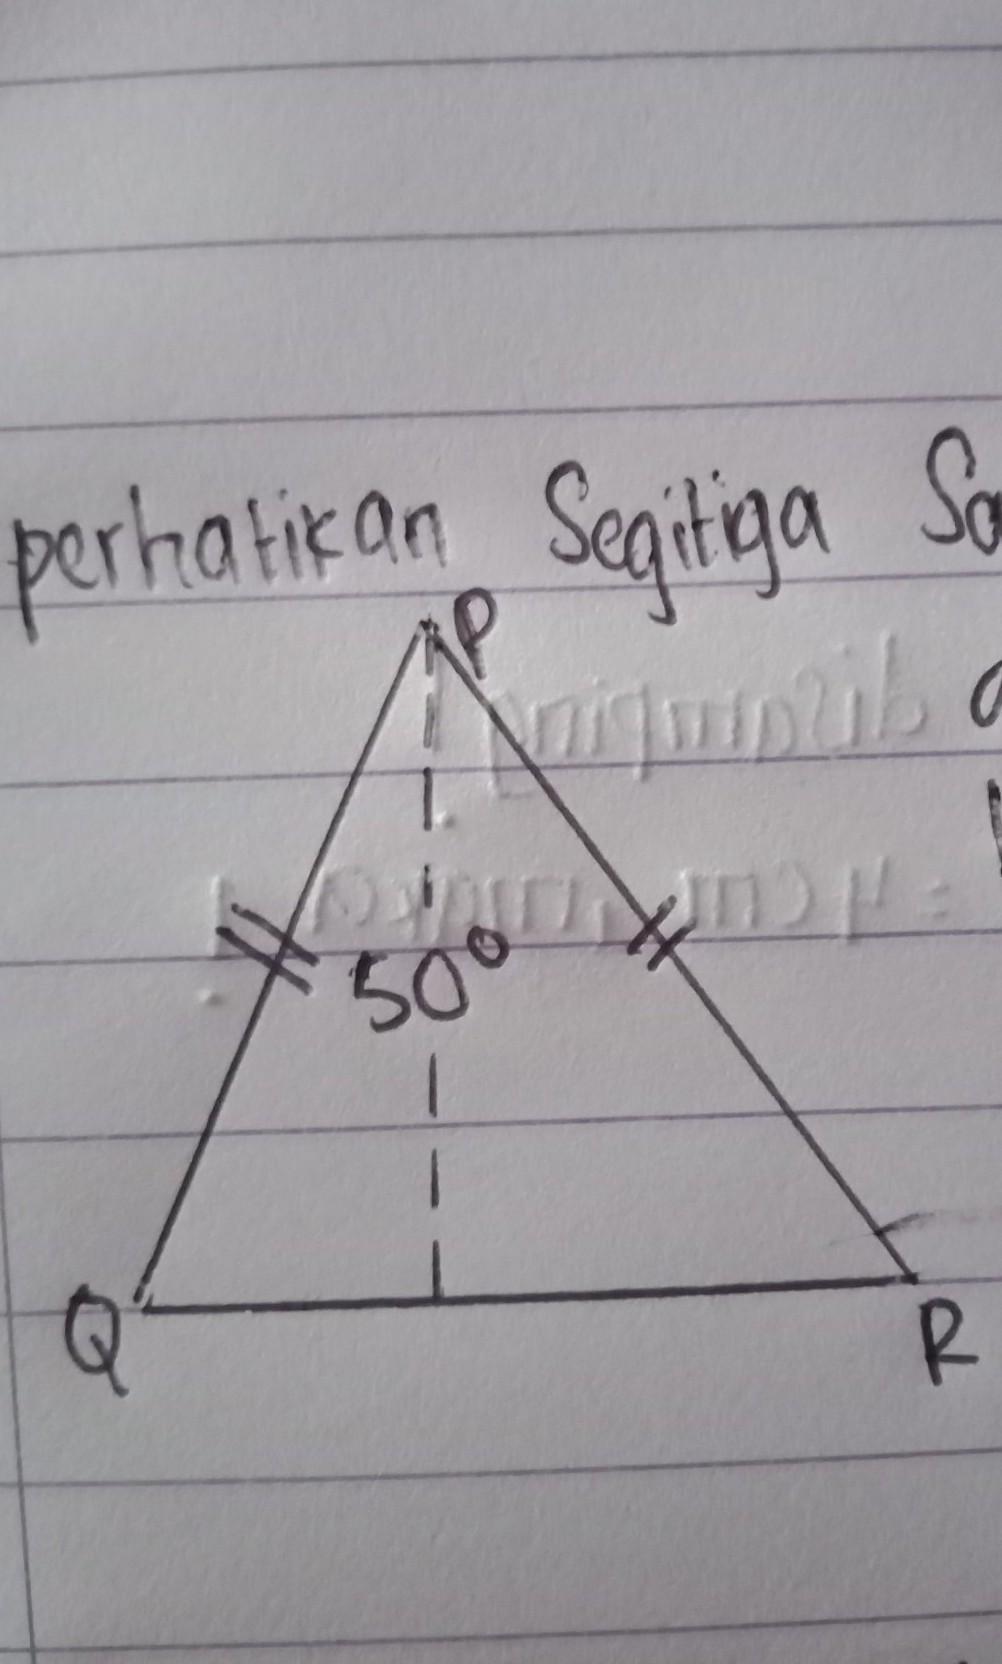 perhatikan Segitiga
P
50°
Q
R